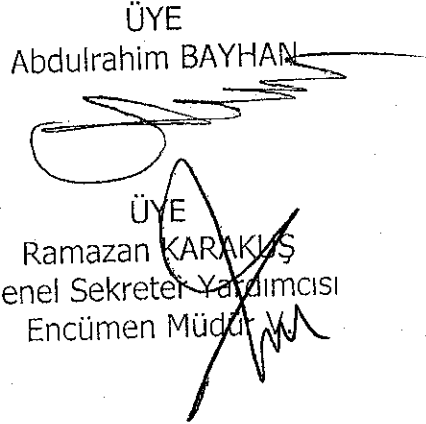 ÜYE
Abdulrahim BAYHAN
ÜYE
Ramazan KARAKUŞ
enel Sekreter Yardımcısı
Encümen Müdür V.